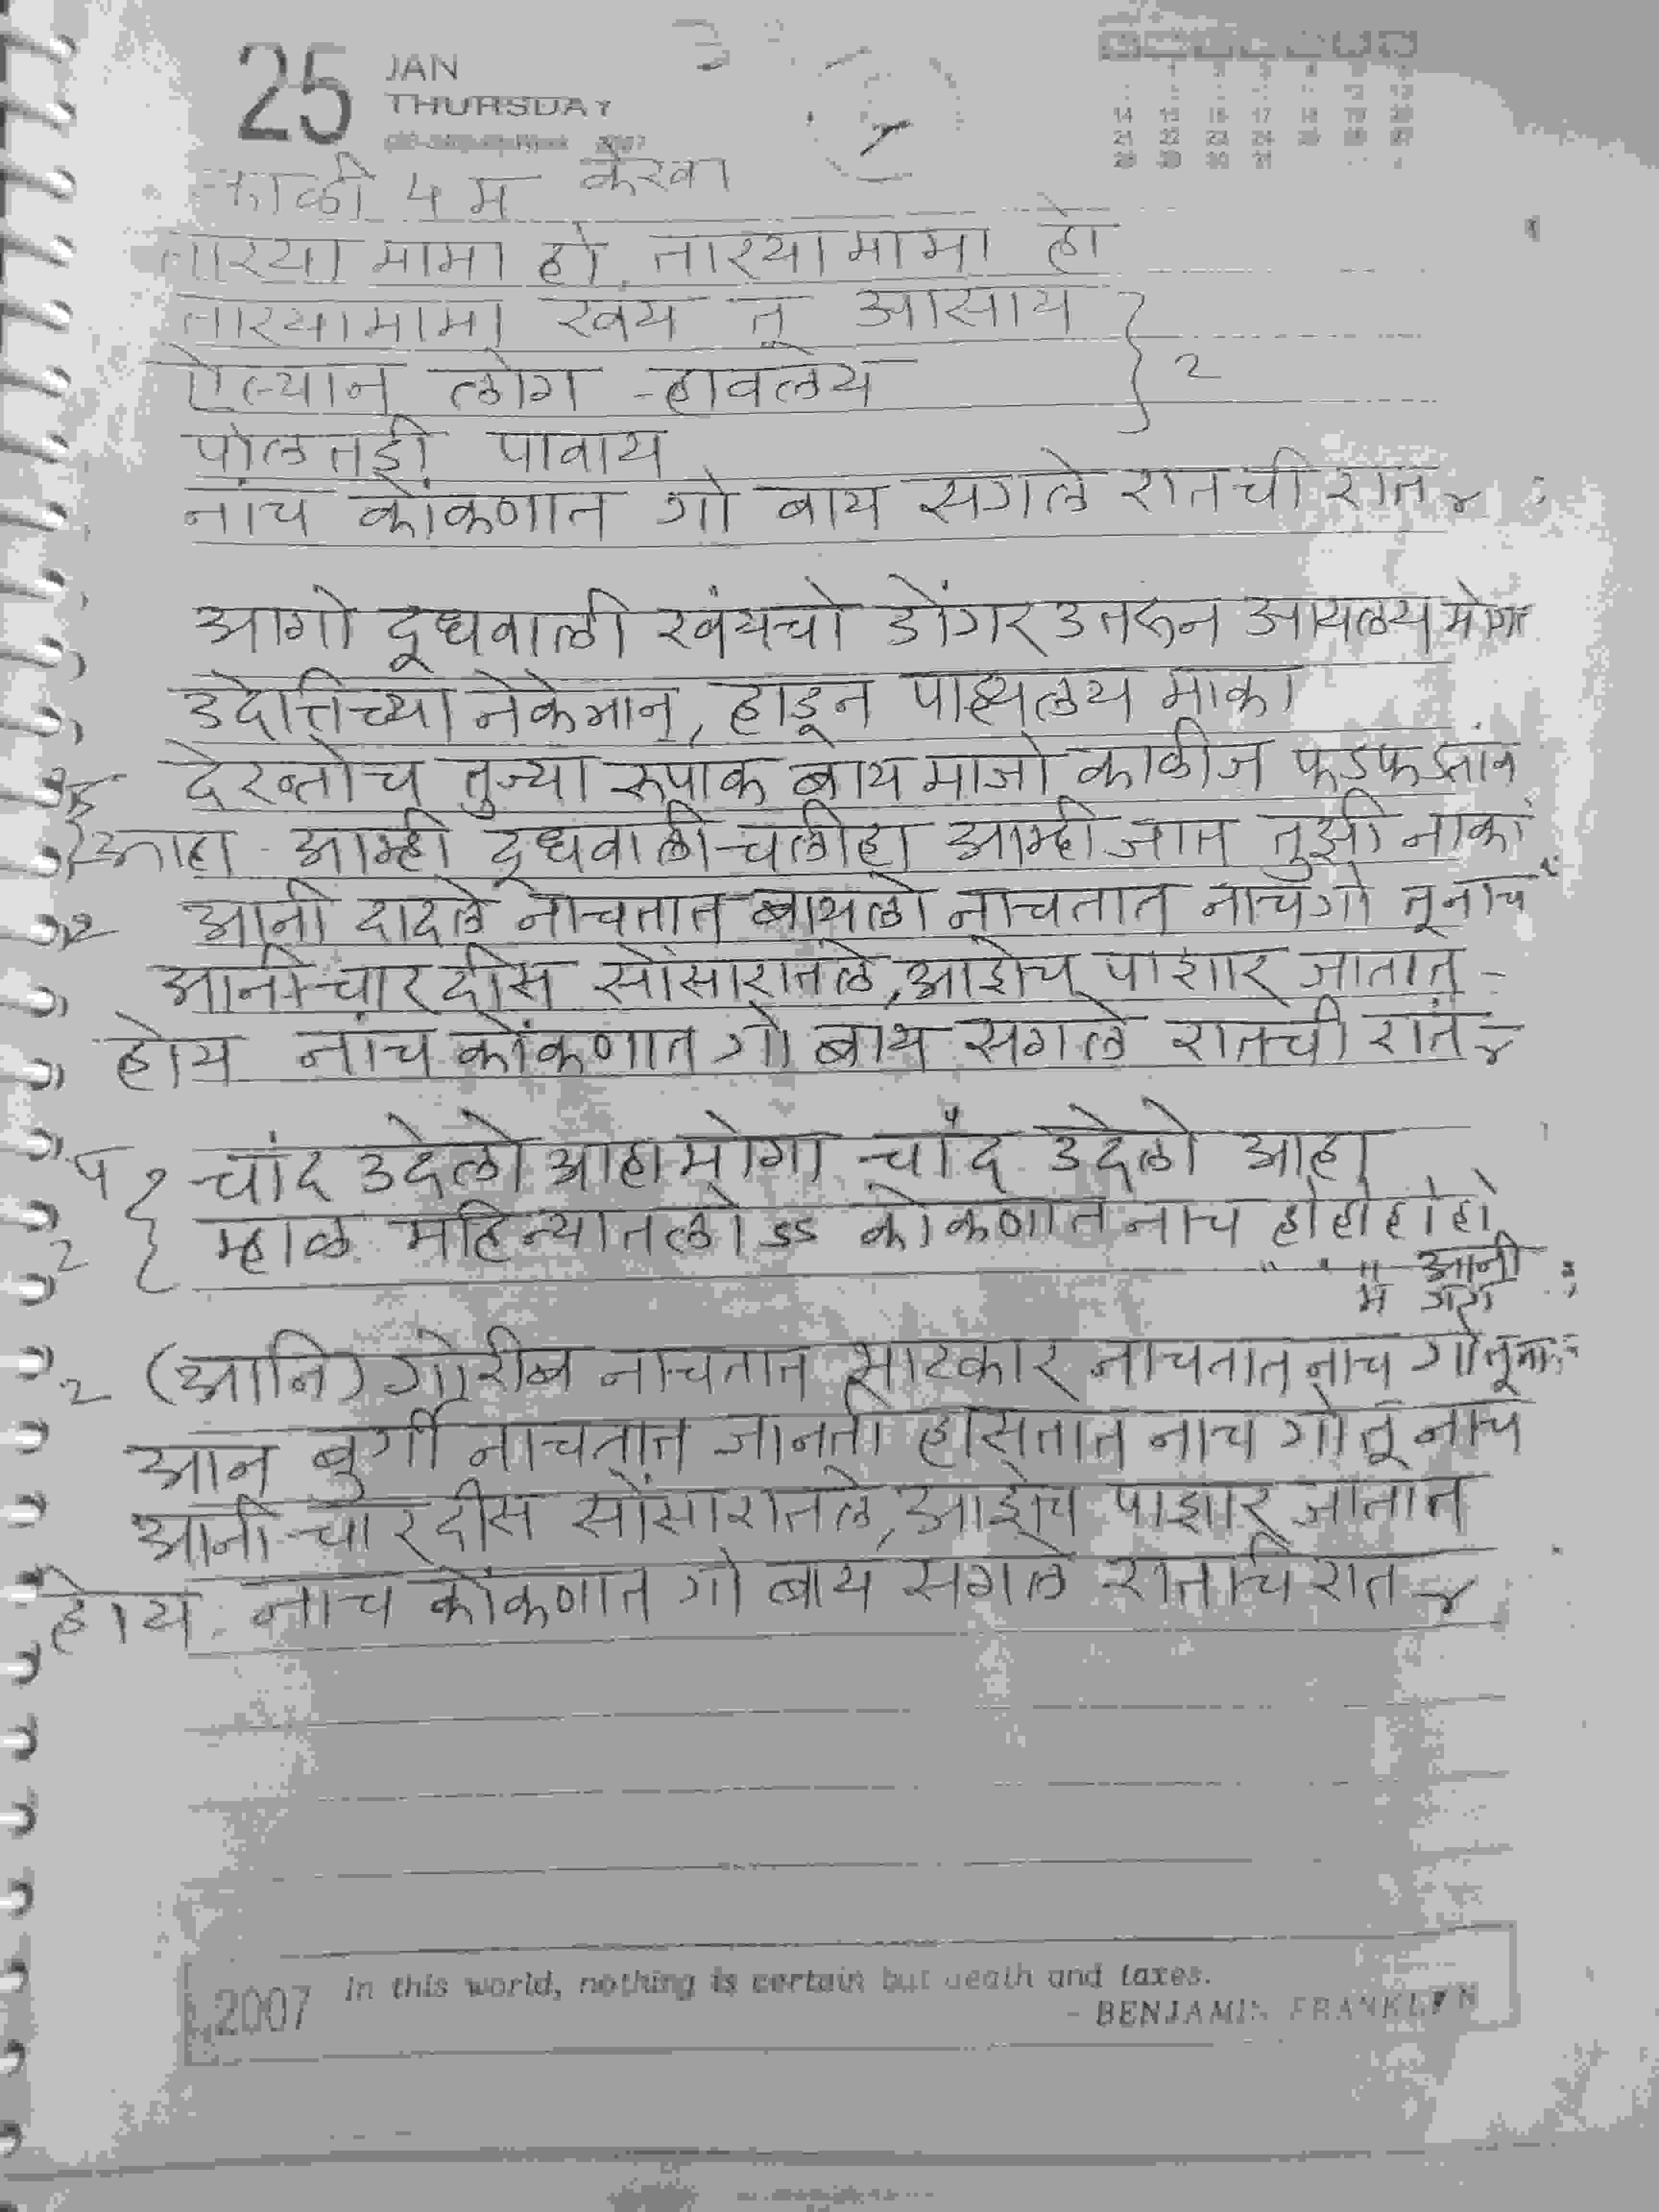 25 JAN
THURSDAY
काळी 4 म केरवा
तारया मामा हो, तारया मामा हो
तारया मामा खंय तू आसाय } 2
ऐल्यान लोग हावलय
पोलतडी पावाय
नांच कोंकणात गो बाय सगले रातची रात
आगो दूधवाली खंयचो डोंगर उतरून आयलय मोगा
उदेंतिच्या नेकेमान, हाडून पाह्यलय माका
देखतोच तुज्या रूपाक बाय माजो काळीज फडफडतांव
आहा आम्ही दूधवाली चलीहा आम्ही जात तुझी नाका
2 आनी दादले नाचतात बायलो नाचतात नाच गो तू नाच
आनी चार दीस सोंसारातले, आशेच पाशार जातात -
होय नांच कोंकणात गो बाय सगले रातची रात
चांद उदेलो आहा मोगा चाँद उदेलो आहा
2 म्हाळ महिन्यातलो ss कोकणात नाच हो हो हो हो
" " " आनी
म
2 (आनि) गोरीब नाचतात भाटकार नाचतात नाच गो तू
आन बुर्गी नाचतात जानती हासतात नाच गो तू नाच
आनी चार दीस सोंसारातले, आशेच पाशार जातात
होय नाच कोंकणात गो बाय सगले रातचि रात
2007 In this world, nothing is certain but death and taxes.
- BENJAMIN FRANKLIN